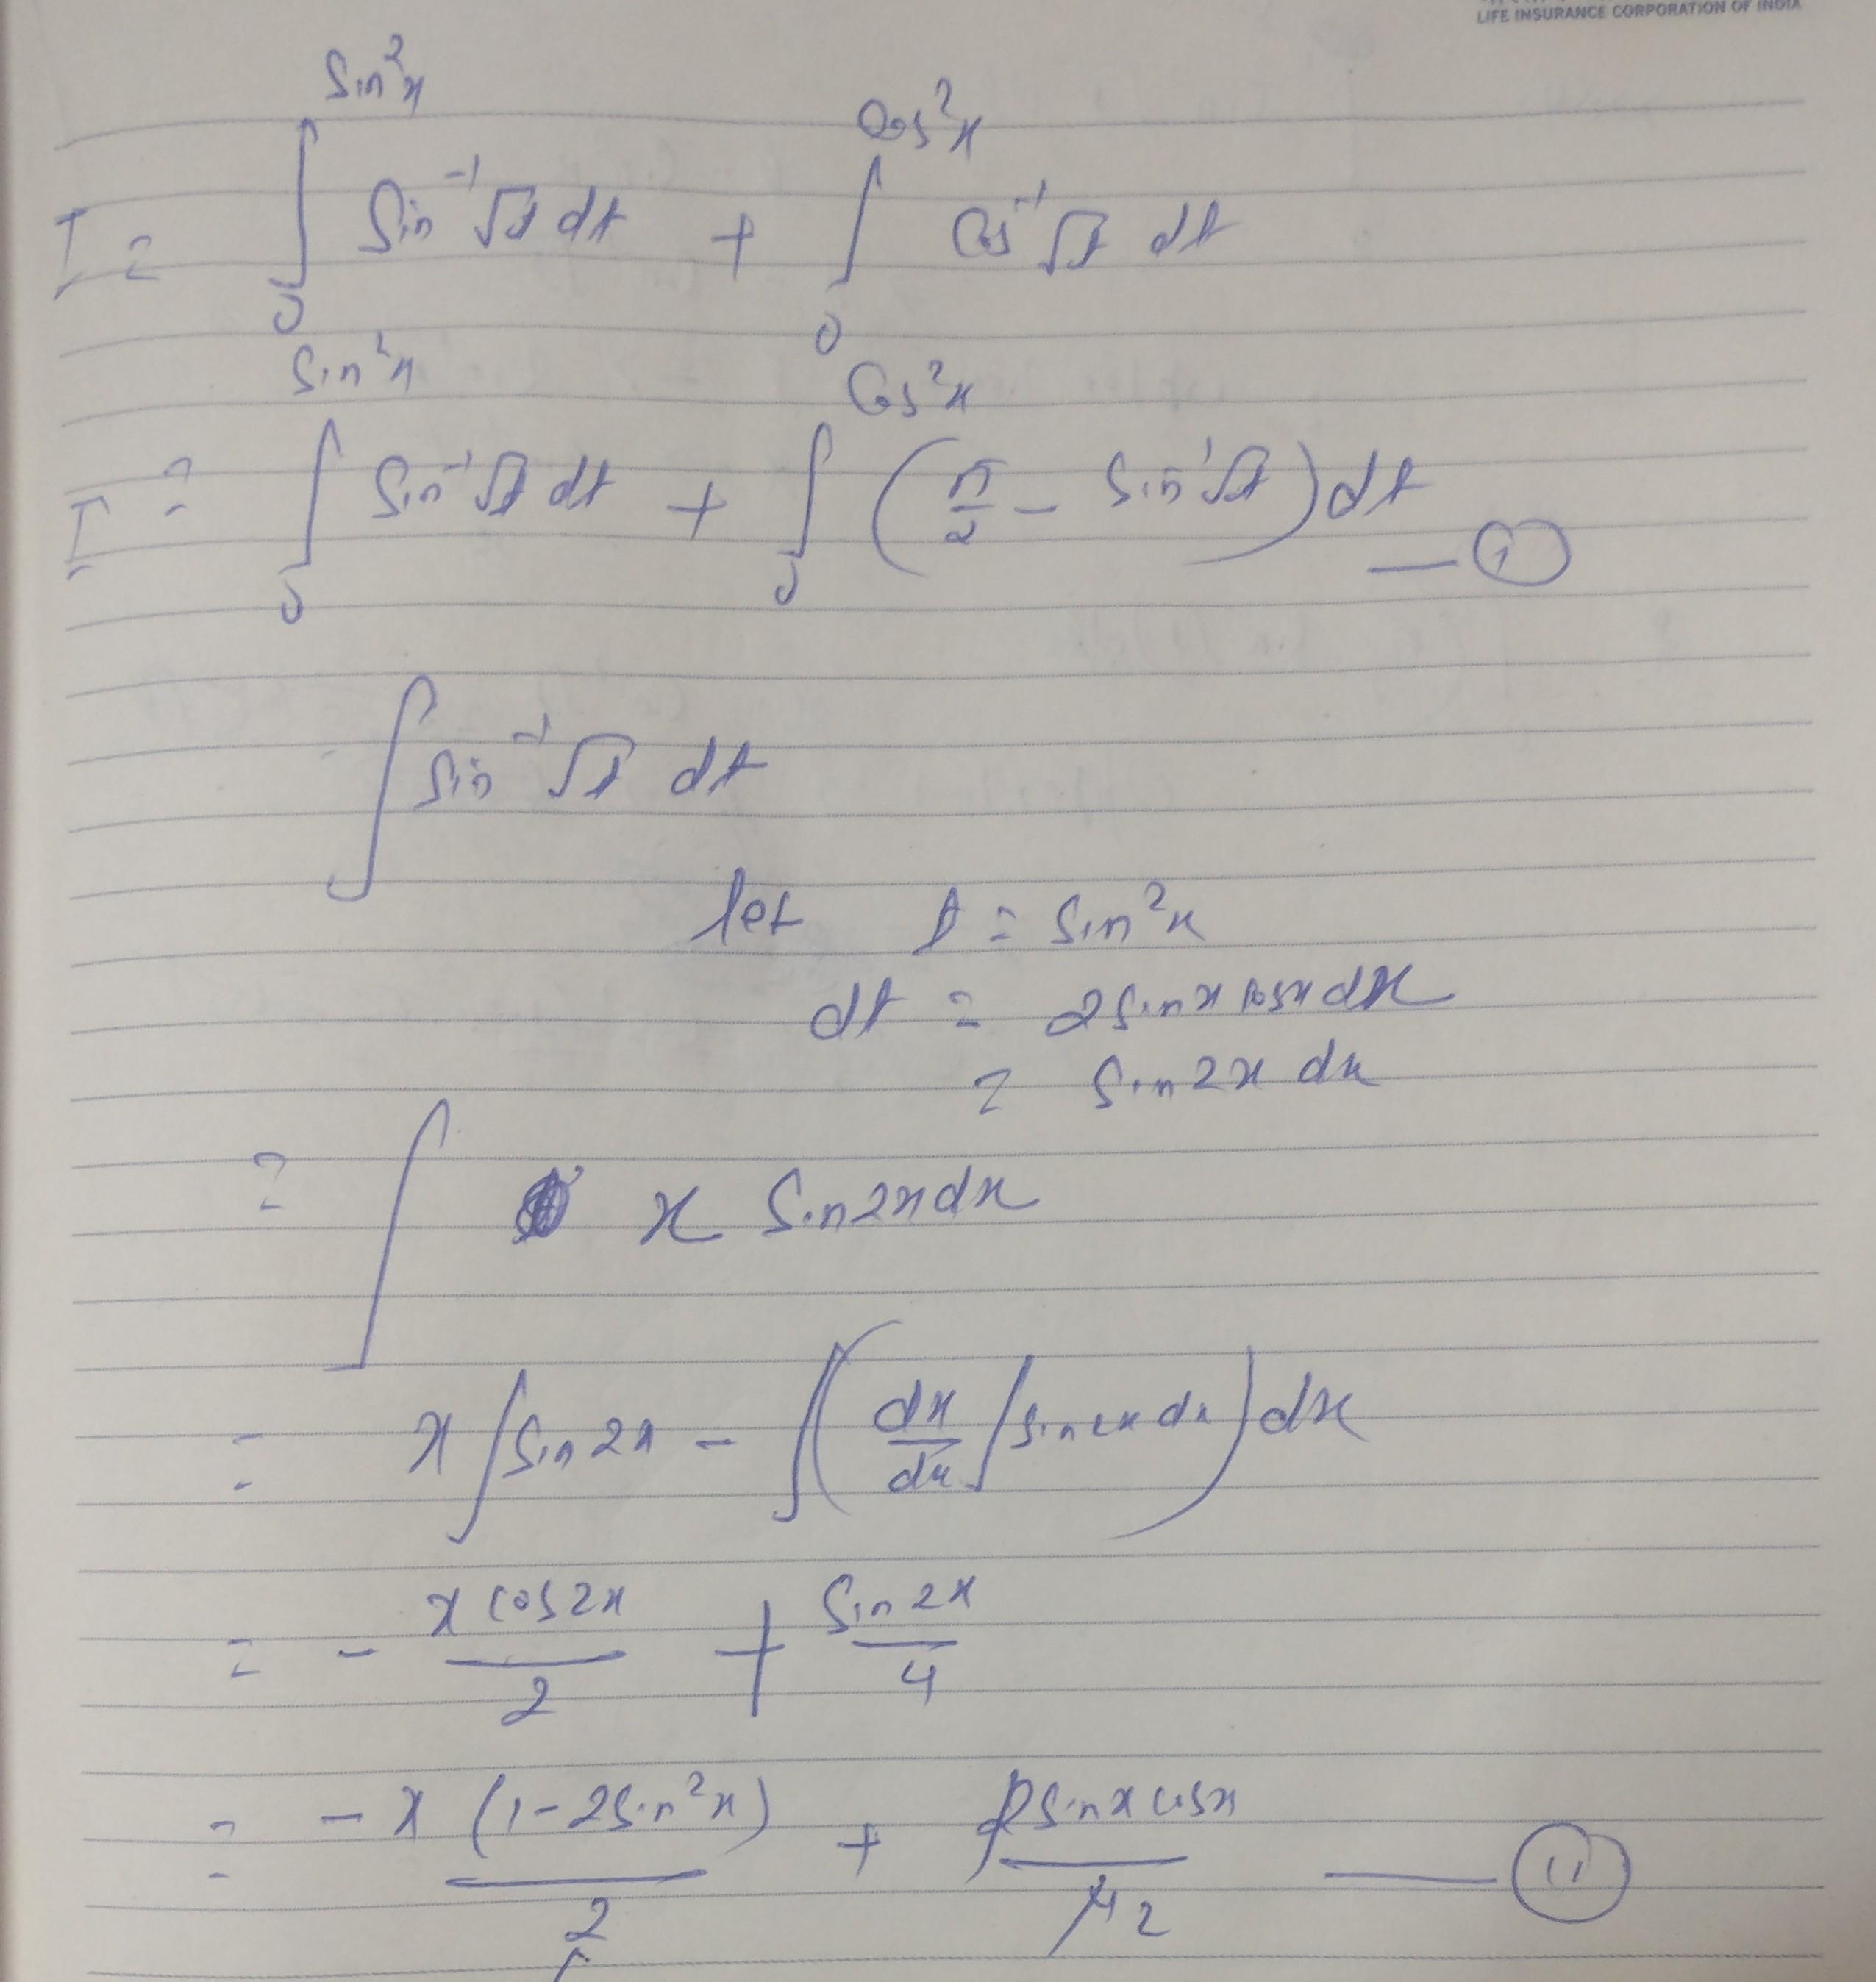 LIFE INSURANCE CORPORATION OF INDIA
I = ∫₀^{Sin²x} Sin⁻¹√t dt + ∫₀^{Cos²x} Cos⁻¹√t dt
I = ∫₀^{Sin²x} Sin⁻¹√t dt + ∫₀^{Cos²x} (π/2 - Sin⁻¹√t) dt — (1)
∫ Sin⁻¹√t dt
let t = Sin²x
dt = 2Sinx cosx dx
= Sin2x dx
= ∫ x Sin2x dx
= x ∫ Sin2x - ∫ (dx/dx ∫ Sin2x dx) dx
= - x cos2x/2 + Sin2x/4
= - x (1-2Sin²x)/2 + 2Sinx cosx/4 2 — (11)